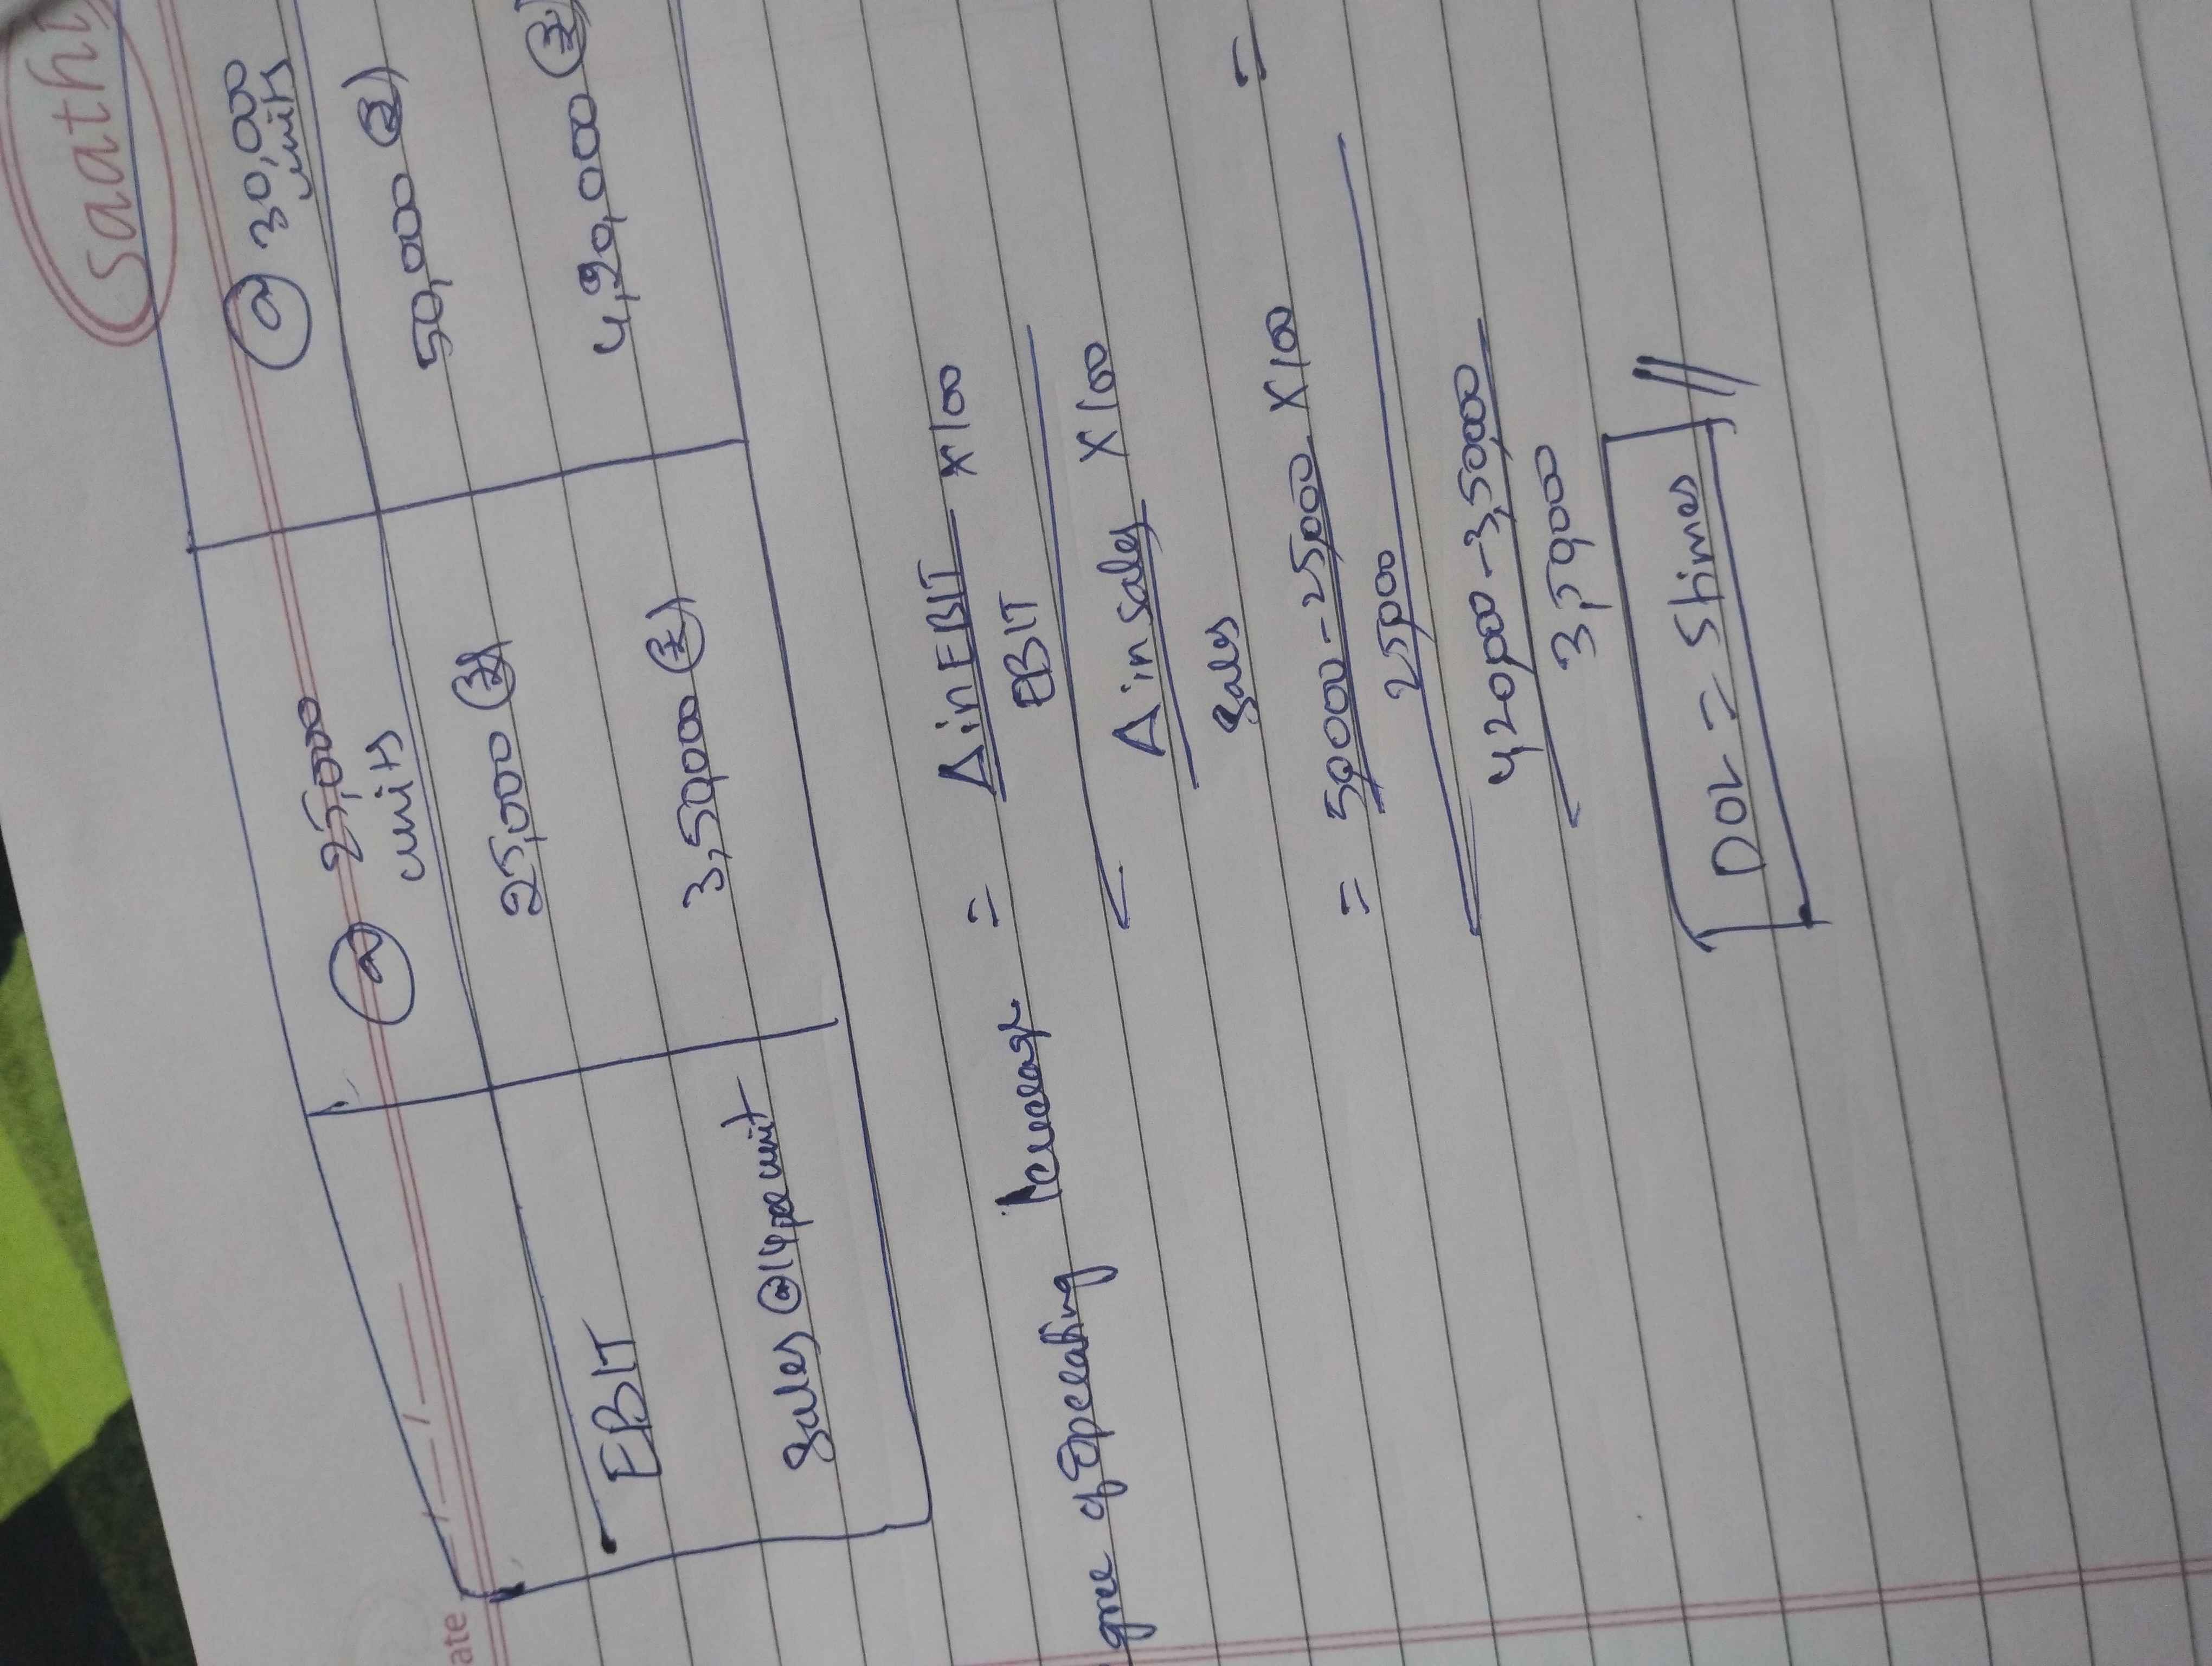 saathi
ate
@ 25,000 units
@ 30,000 units
EBIT
25,000 (₹)
50,000 (₹)
Sales @14 per unit
3,50,000 (₹)
4,20,000 (₹)
gree of Operating =
Δ in EBIT X100
EBIT
Δ in Sales X100
Sales
= 50000-25000 X100
25000
=
4,20,000 - 3,50,000
3,50,000
DOL = 5times //